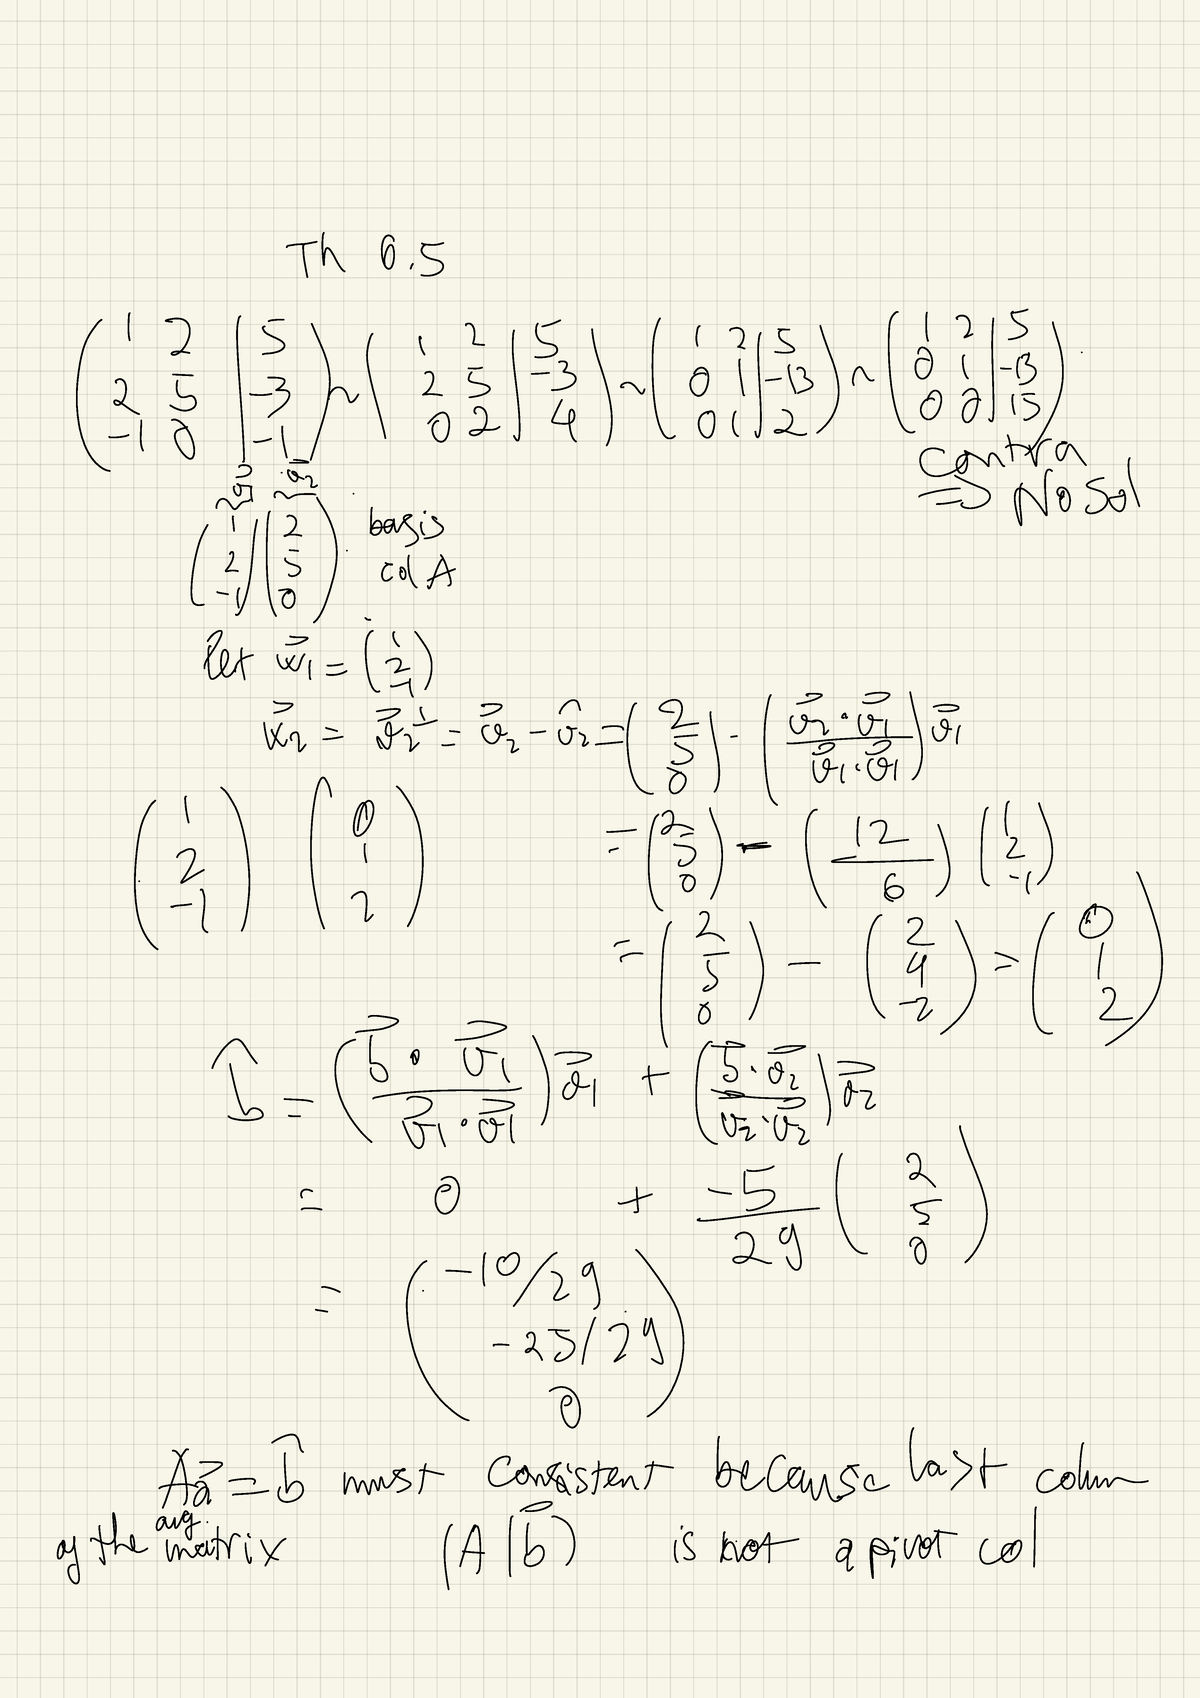 Th 6.5
( 1 2 | 5 ; 2 5 | -3 ; -1 0 | -1 ) ~ ( 1 2 | 5 ; 2 5 | -3 ; 0 2 | 4 ) ~ ( 1 2 | 5 ; 0 1 | -13 ; 0 1 | 2 ) ~ ( 1 2 | 5 ; 0 1 | -13 ; 0 0 | 15 )
contra
⇒ No Sol
v⃗1 v⃗2
( 1 ; 2 ; -1 ) ( 2 ; 5 ; 0 ) basis
col A
let w⃗1 = ( 1 ; 2 ; -1 )
w⃗2 = v⃗2^⊥ = v⃗2 - v̂2 = ( 2 ; 5 ; 0 ) - ( v⃗2 · v⃗1 / v⃗1 · v⃗1 ) v⃗1
= ( 2 ; 5 ; 0 ) - ( 12 / 6 ) ( 1 ; 2 ; -1 )
( 1 ; 2 ; -1 ) ( 0 ; 1 ; 2 )
= ( 2 ; 5 ; 0 ) - ( 2 ; 4 ; -2 ) = ( 0 ; 1 ; 2 )
b̂ = ( b⃗ · v⃗1 / v⃗1 · v⃗1 ) v⃗1 + ( b⃗ · v⃗2 / v⃗2 · v⃗2 ) v⃗2
= 0 + -5/29 ( 2 ; 5 ; 0 )
= ( -10/29 ; -25/29 ; 0 )
Ax⃗ = b̂ must consistent because last colum
of the aug. matrix (A | b⃗) is not a pivot col